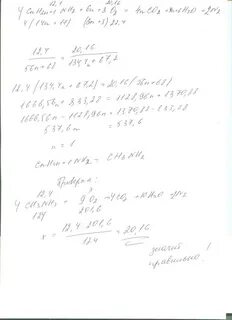 12,4 20,16
4 CnH2n+1NH2 + 6n+3 O2 = 4nCO2 + 2N2
4(14n+17) (6n+3)22,4
12,4 / 56n+68 = 20,16 / 134,4n+67,2
12,4(134,4n+67,2) = 20,16(56n+68)
1666,56n + 833,28 = 1128,96n + 1370,88
1666,56n - 1128,96n = 1370,88 - 833,28
537,6n = 537,6
n = 1
CnH2n+1NH2 - CH3NH2
Проверка:
12,4 x
4CH3NH2 + 9O2 = 4CO2 + 10H2O + 2N2
124 201,6
x = 12,4 · 201,6 / 124 = 20,16
значит
правильно!